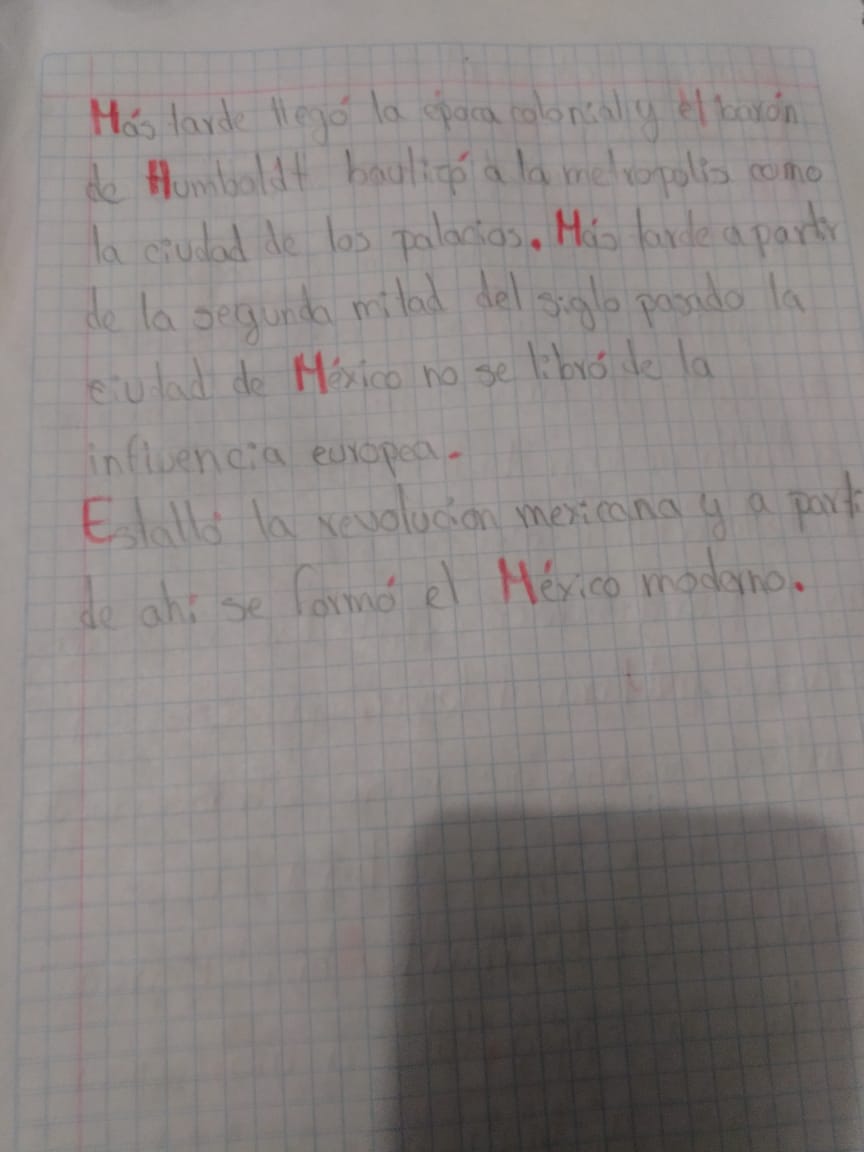 Más tarde llegó la época colonial y el barón
de Humboldt bautizó a la metropolis como
la ciudad de los palacios. Más tarde a partir
de la segunda mitad del siglo pasado la
ciudad de México no se libró de la
influencia europea.
Estalló la revolucion mexicana y a parti
de ahi se formó el México moderno.